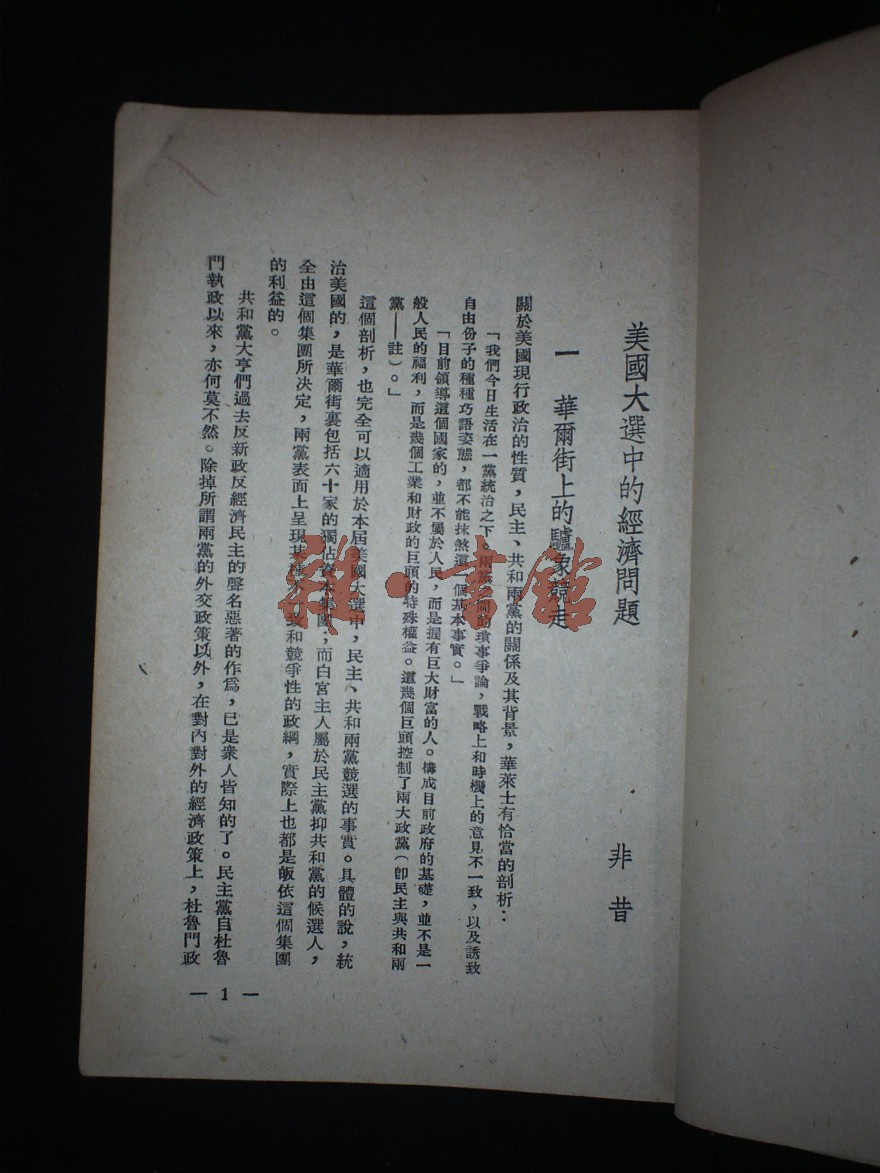 美國大選中的經濟問題
非昔
一 華爾街上的驢象競走
關於美國現行政治的性質，民主、共和兩黨的關係及其背景，華萊士有恰當的剖析：
「我們今日生活在一黨統治之下。兩黨之間的瑣事爭論，戰略上和時機上的意見不一致，以及誘致
自由份子的種種巧語姿態，都不能抹煞這一個基本事實。」
「目前領導這個國家的，並不屬於人民，而是握有巨大財富的人。構成目前政府的基礎，並不是一
般人民的福利，而是幾個工業和財政的巨頭的特殊權益。這幾個巨頭控制了兩大政黨（卽民主與共和兩
黨——註）。」
這個剖析，也完全可以適用於本屆美國大選中，民主、共和兩黨競選的事實。具體的說，統
治美國的，是華爾街裏包括六十家的獨佔資本集團；而白宮主人屬於民主黨抑共和黨的候選人，
全由這個集團所决定，兩黨表面上呈現某種不一致和競爭性的政綱，實際上也都是皈依這個集團
的利益的。
共和黨大亨們過去反新政反經濟民主的聲名惡著的作爲，已是衆人皆知的了。民主黨自杜魯
門執政以來，亦何莫不然。除掉所謂兩黨的外交政策以外，在對內對外的經濟政策上，杜魯門政
— 1 —
雜·書館